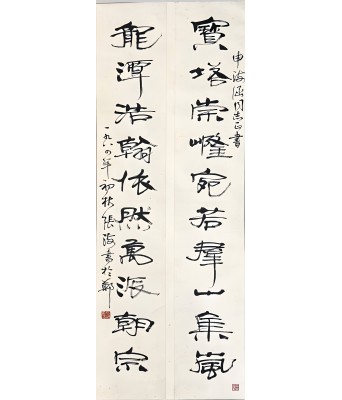 申海涵同志正書
寶塔崇隆宛若羣山集嵐
龍潭浩瀚依然萬派朝宗
一九八四年初秋張海書於鄭